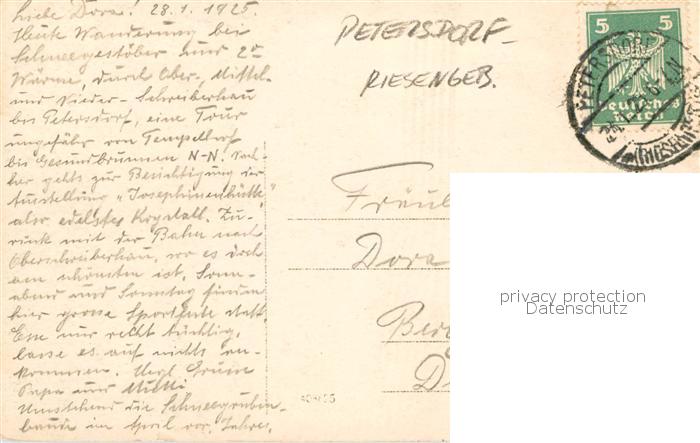 Liebe Dora! 28.1.1925.
Heute Wanderung bei
Schneegestöber und 2°
Wärme, durch Ober-, Mittel-
und Nieder-Schreiberhau
bis Petersdorf, eine Tour
ungefähr von Tempelhof
bis Gesundbrunnen N-N. Nach-
her gehts zur Besichtigung der
Ausstellung "Josephinenhütte",
also edelstes Krystall. Zu-
rück mit der Bahn nach
Oberschreiberhau, wo es doch
am schönsten ist. Sonn-
abend und Sonntag finden
hier grosse Sportfeste statt.
Esse nur recht tüchtig,
lasse es auf nichts an-
kommen. Herzl Grüsse
Papa und Mutti
Umstehend die Schneegruben-
baude im April vor. Jahres.
PETERSDORF-
RIESENGEB.
5 5
Deutsches
Reich
PETERSDORF
(RIESENGEB
Fräul
Dora
Ber
privacy protection
Datenschutz